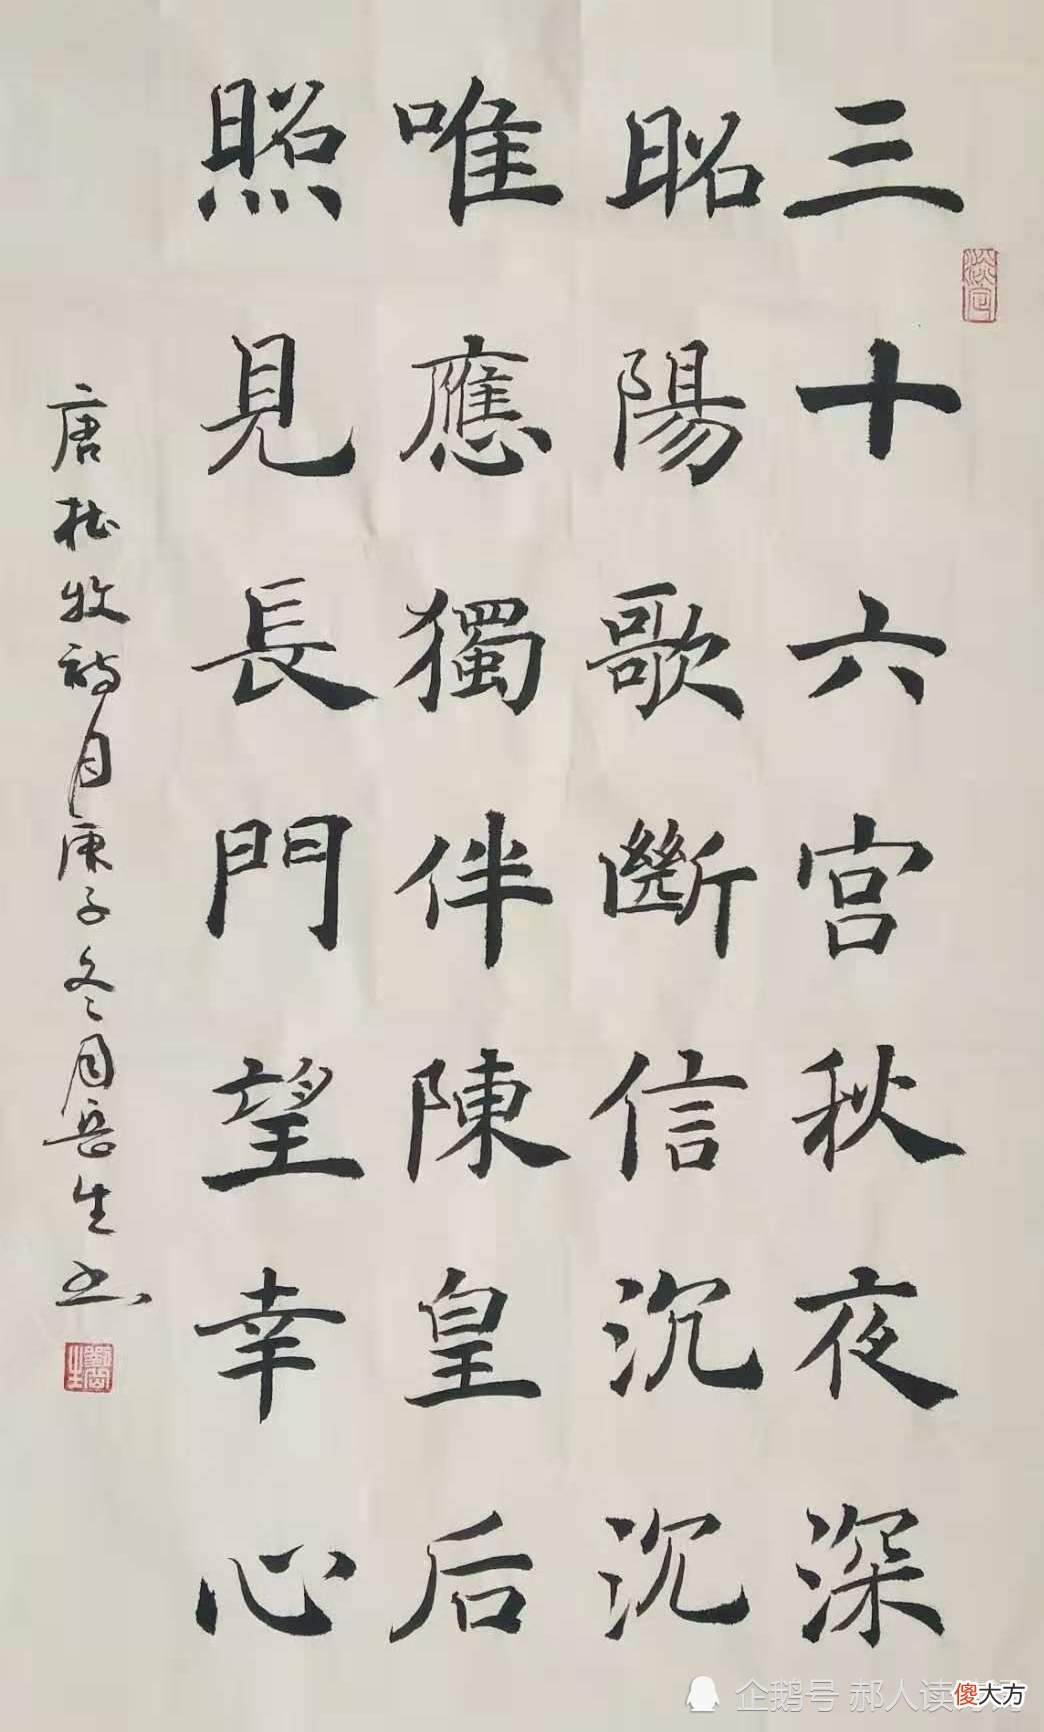 三十六宫秋夜深
昭陽歌斷信沉沉
唯應獨伴陳皇后
照見長門望幸心
唐杜牧詩月庚子冬月岳生书
企鹅号 郝人读
傻大方